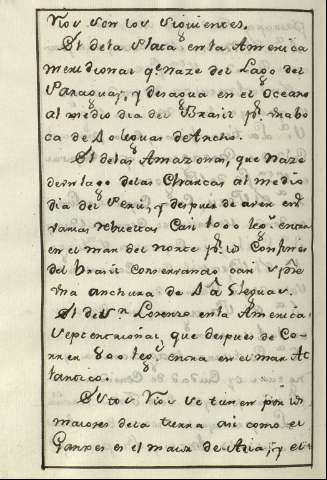 Rios son los siguientes.
El dela Plata en la America
meridional qe. naze del Lago del
Paraguay, y desagua en el Oceano
al medio dia del Brasil pr. una bo
ca de leguas de Ancho.
El delas Amazonas, que naze
de un lago delas Chancas al medio
dia del Peru, y despues de aver
varias rebueltas Casi 1000 leg. entra
en el mar del norte pr. los Confines
del brasil Conservando casi
una anchura de leguas.
El de Sn. Lorenzo en la America
septentrional, que despues de Co-
rrer 800 leg. entra en el mar At
lantico.
Estos Rios se tienen por los
maiores dela tierra asi como el
Ganges es el maior de Asia, y el